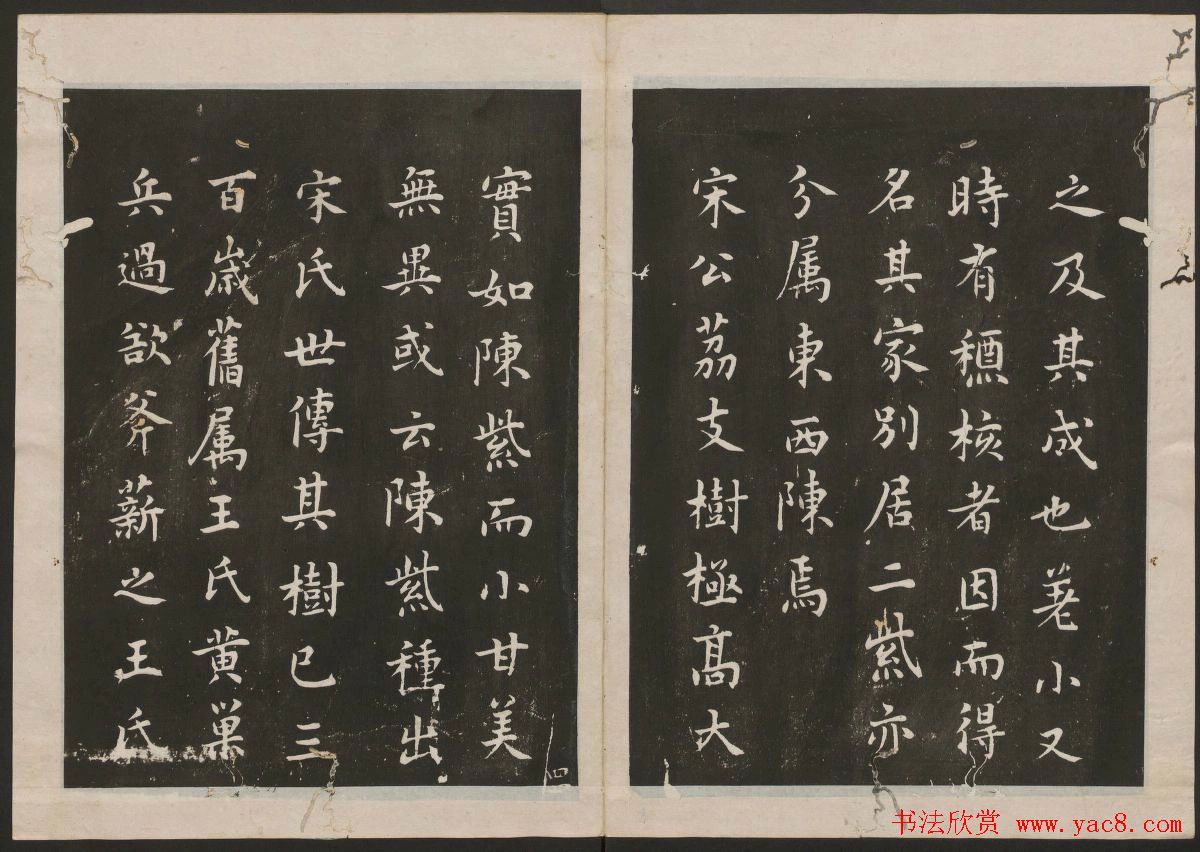 之及其成也差小又
時有穮核者因而得
名其家別居二紫亦
分属東西陳焉
宋公荔支樹極髙大
實如陳紫而小甘美
無異或云陳紫種出
宋氏世傳其樹已三
百歳舊属王氏黄巢
兵過欲斧薪之王氏
四
书法欣赏 www.yac8.com